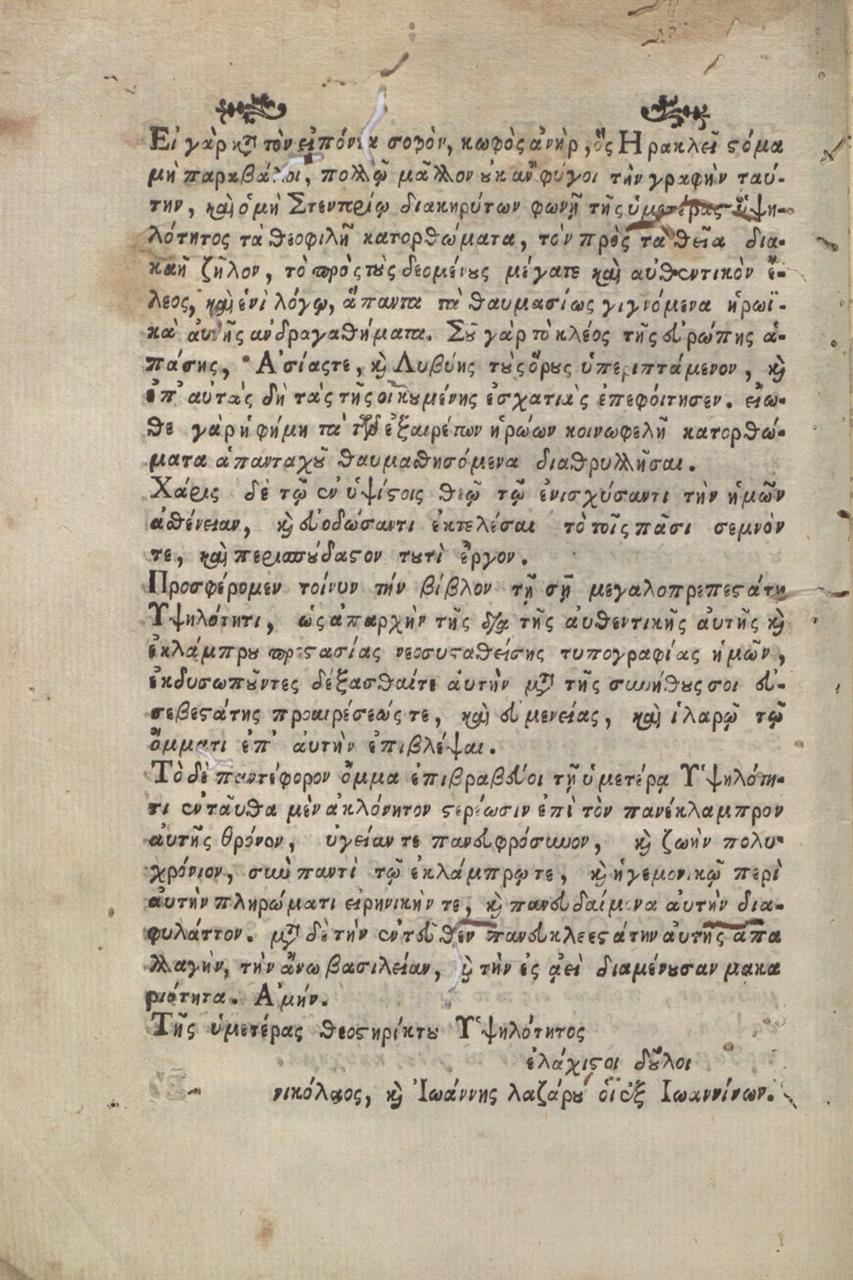 Εἰ γὰρ κατὰ τὸν εἰπόντα σοφὸν, κωφὸς ἀνὴρ, ὃς Ἡρακλεῖ στόμα
μὴ παραβάλοι, πολλῷ μᾶλλον ȣκ ἂν φύγοι τὴν γραφὴν ταύ-
την, καὶ ὁ μὴ Στεντορείῳ διακηρύτων φωνῇ τῆς ὑμετέρας ὑψη-
λότητος τὰ θεοφιλῆ κατορθώματα, τὸν πρὸς τὰ θεῖα δια-
καῆ ζῆλον, τὸ πρὸς τȣ̀ς δεομένȣς μέγατε καὶ αὐθεντικὸν ἔ-
λεος, καὶ ἑνὶ λόγῳ, ἅπαντα τὰ θαυμασίως γιγνόμενα ἡρωϊ-
κὰ αὐτῆς ἀνδραγαθήματα. Σȣ͂ γὰρ τὸ κλέος τῆς εὐρώπης ἁ-
πάσης, Ἀσίαςτε, καὶ Λυβύης τȣ̀ς ὅρȣς ὑπεριπτάμενον, καὶ
ἐπ' αὐτὰς δὴ τὰς τῆς οἰκȣμένης ἐσχατιὰς ἐπεφοίτησεν. εἴω-
θε γὰρ ἡ φήμη τὰ τῶν ἐξαιρέτων ἡρώων κοινωφελῆ κατορθώ-
ματα ἁπανταχȣ͂ θαυμαθησόμενα διαθρυλλῆσαι.
Χάρις δὲ τῷ ἐν ὑψίστοις θεῷ τῷ ἐνισχύσαντι τὴν ἡμῶν
ἀθένειαν, καὶ εὐοδώσαντι ἐκτελέσαι τὸ τοῖς πᾶσι σεμνὸν
τε, καὶ περισπύδαστον τȣτὶ ἔργον.
Προσφέρομεν τοίνυν τὴν βίβλον τῇ σῇ μεγαλοπρεπεστάτῃ
Ὑψηλότητι, ὡς ἀπαρχὴν τῆς διὰ τῆς αὐθεντικῆς αὐτῆς καὶ
ἐκλάμπρȣ προστασίας νεοσυσταθείσης τυπογραφίας ἡμῶν,
ἐκδυσωπȣ͂ντες δέξασθαίτε ἀυτὴν μετὰ τῆς συνήθȣς σοι εὐ-
σεβεστάτης προαιρέσεώς τε, καὶ εὐμενείας, καὶ ἱλαρῷ τῷ
ὄμματι ἐπ' ἀυτὴν ἐπιβλέψαι.
Τὸ δὲ παντέφορον ὄμμα ἐπιβραβεύοι τῇ ὑμετέρᾳ Ὑψηλότη-
τι ἐνταῦθα μὲν ἀκλόνητον στερέωσιν ἐπὶ τὸν πανέκλαμπρον
ἀυτῆς θρόνον, ὑγείαν τε πανευφρόσυνον, καὶ ζωὴν πολυ-
χρόνιον, σὺν παντὶ τῷ ἐκλάμπρῳ τε, καὶ ἡγεμονικῷ περὶ
ἀυτὴν πληρώματι εἰρηνικήν τε, καὶ πανευδαίμονα αὐτὴν δια-
φυλάττον. μετὰ δὲ τὴν ἐντεῦθεν πανευκλεεστάτην αὐτῆς ἀπα
λλαγὴν, τὴν ἄνω βασιλείαν, καὶ τὴν ἐς ἀεὶ διαμένȣσαν μακα
ριότητα. Ἀμήν.
Τῆς ὑμετέρας θεοστηρίκτȣ Ὑψηλότητος
ἐλάχιστοι δȣ͂λοι
νικόλαος, καὶ Ἰωάννης λαζάρȣ οἱ ἐξ Ἰωαννίνων.